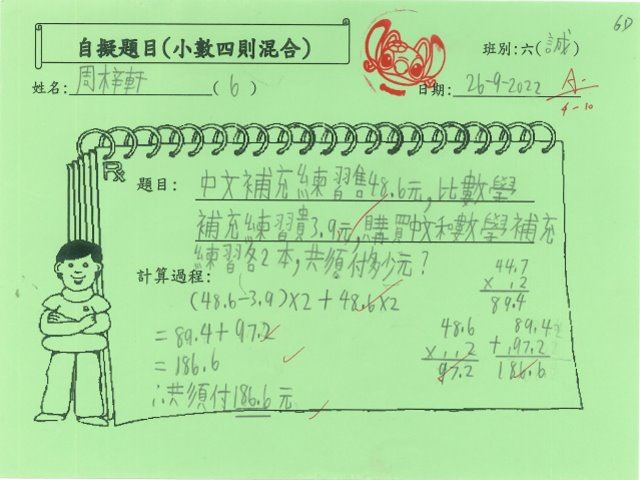 6D
自擬題目(小數四則混合)
班別:六(誠)
姓名:周梓軒(6)
日期:26-9-2022
A-
4-10
題目:中文補充練習售48.6元,比數學
補充練習貴3.9元,購買中文和數學補充
練習各2本,共須付多少元?
計算過程:
(48.6-3.9)×2+48.6×2
=89.4+97.2
=186.6
∴共須付186.6元
44.7
× 2
89.4
48.6
× 2
97.2
89.4
+ 97.2
186.6